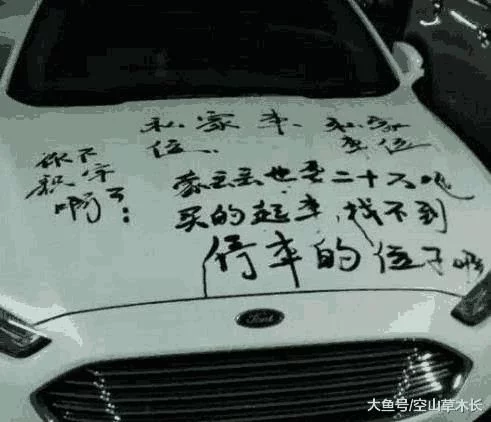 私家车、私家
位、车位
你不
字
啊
也要二十六
买的起车，找不到
停车的位子啊
Ford
大鱼号/空山草木长